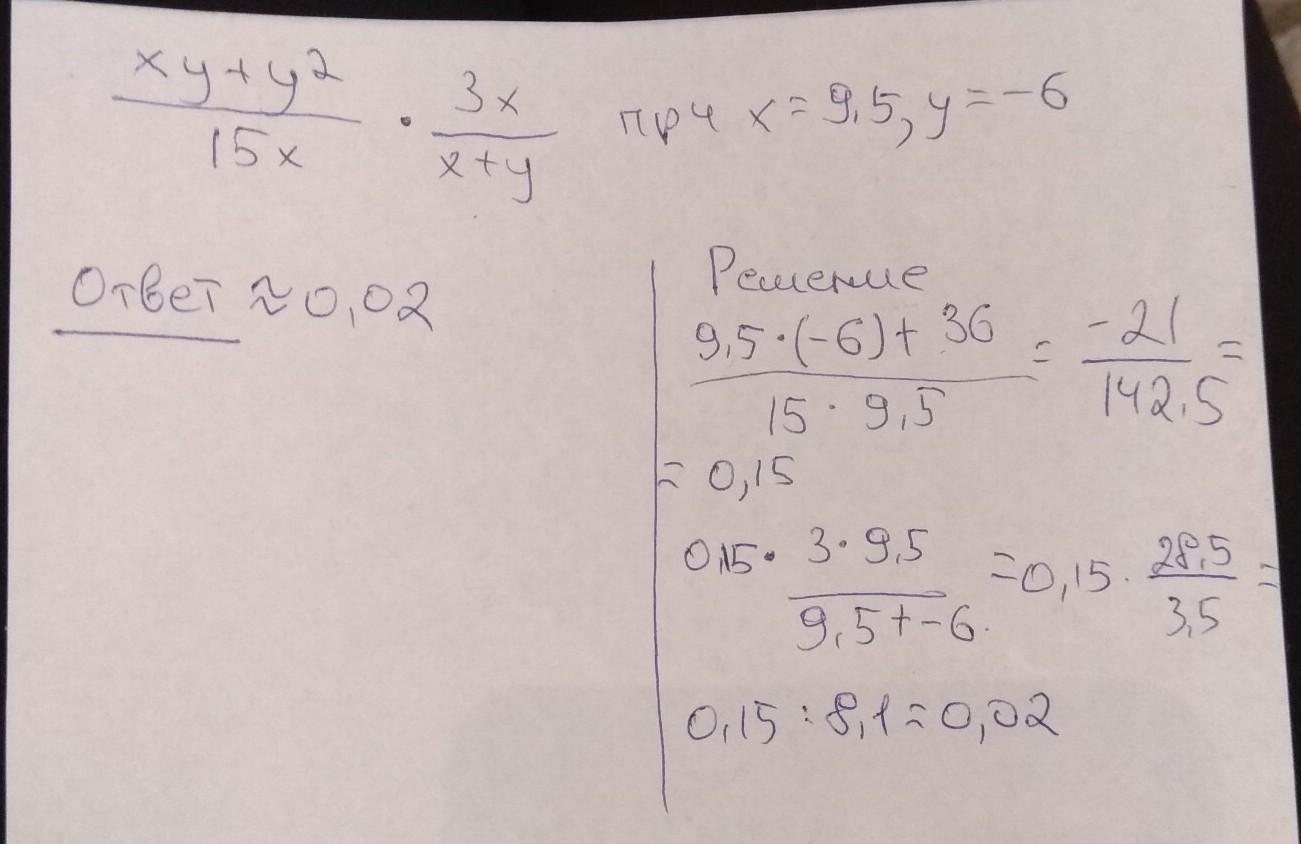 xy+y² / 15x · 3x / x+y при x=9,5, y=-6
Ответ ≈ 0,02
Решение
9,5·(-6)+36 / 15·9,5 = -21 / 142,5 =
= 0,15
0,15· 3·9,5 / 9,5+-6 = 0,15· 28,5 / 3,5 =
0,15:8,1=0,02